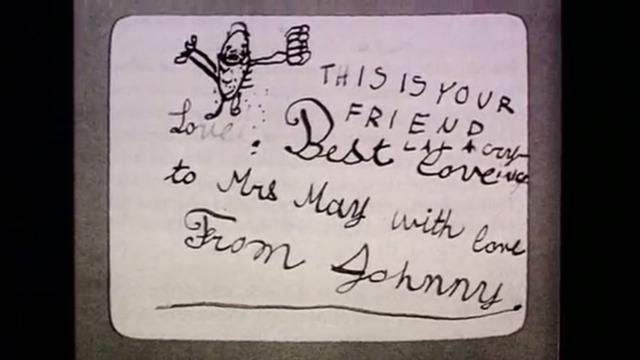 THIS IS YOUR
FRIEND
Love
: Best love
to Mrs May with love
From Johnny.